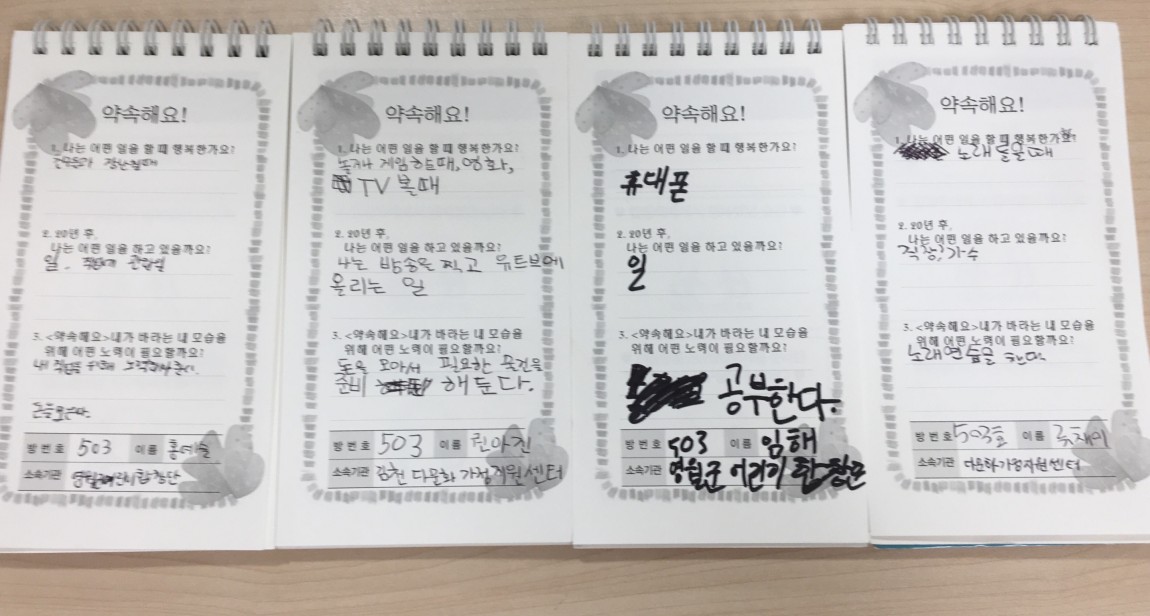 약속해요!
1. 나는 어떤 일을 할 때 행복한가요?
장난칠때
2. 20년 후,
나는 어떤 일을 하고 있을까요?
일.
3. <약속해요>내가 바라는 내 모습을
위해 어떤 노력이 필요할까요?
내 위해
돈을모은다.
방 번호 503 이름
소속기관
약속해요!
1. 나는 어떤 일을 할 때 행복한가요?
놀거나 게임하는때, 영화,
TV 볼때
2. 20년 후,
나는 어떤 일을 하고 있을까요?
나는 방송을 찍고 뮤트브에
올리는 일
3. <약속해요>내가 바라는 내 모습을
위해 어떤 노력이 필요할까요?
돈을 모아서 필요한 물건을
준비 해 둔다.
방 번호 503 이름
소속기관 김천 다문화 가정지원센터
약속해요!
1. 나는 어떤 일을 할 때 행복한가요?
휴대폰
2. 20년 후,
나는 어떤 일을 하고 있을까요?
일
3. <약속해요>내가 바라는 내 모습을
위해 어떤 노력이 필요할까요?
공부한다.
방 번호 503 이름 임해
소속기관 영월군
약속해요!
1. 나는 어떤 일을 할 때 행복한가요?
노래 들을때
2. 20년 후,
나는 어떤 일을 하고 있을까요?
직장, 가수
3. <약속해요>내가 바라는 내 모습을
위해 어떤 노력이 필요할까요?
노래연습을 한다.
방 번호 503호 이름
소속기관 다문화가정지원센터